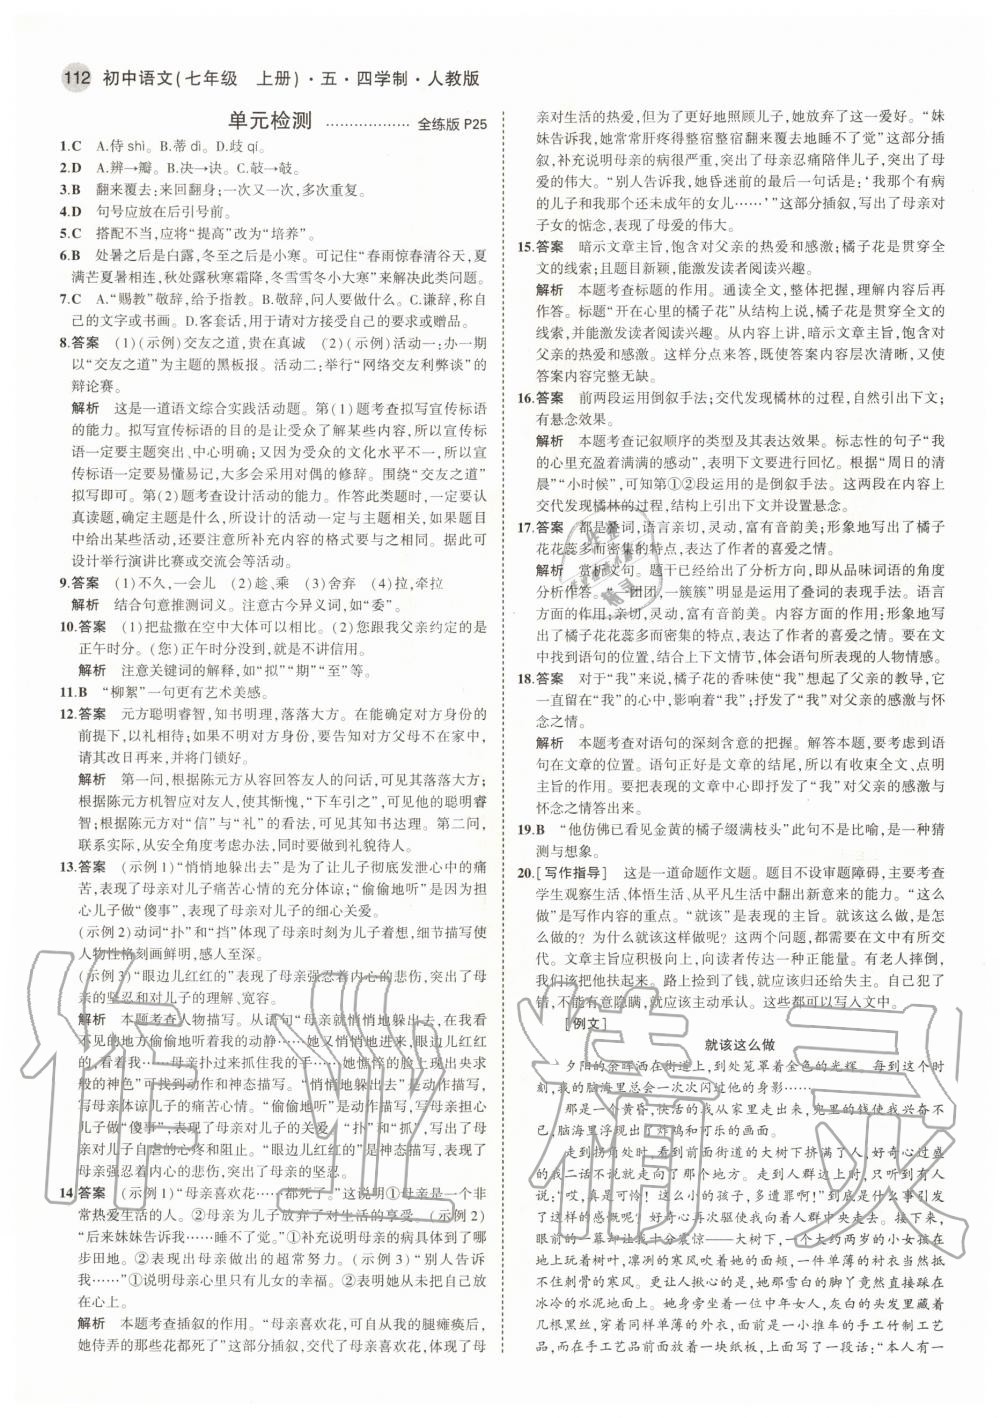 112 初中语文(七年级　上册)·五·四学制·人教版
单元检测 ……………… 全练版 P25
1.C　A.侍 shì。B.蒂 dì。D.歧 qí。
2.D　A.辨→瓣。B.决→诀。C.敧→鼓。
3.B　翻来覆去:来回翻身;一次又一次,多次重复。
4.D　句号应放在后引号前。
5.C　搭配不当,应将“提高”改为“培养”。
6.B　处暑之后是白露,冬至之后是小寒。可记住“春雨惊春清谷天,夏
满芒夏暑相连,秋处露秋寒霜降,冬雪雪冬小大寒”来解决此类问题。
7.C　A.“赐教”敬辞,给予指教。B.敬辞,问人要做什么。C.谦辞,称自
己的文字或书画。D.客套话,用于请对方接受自己的要求或赠品。
8.答案　(1)(示例)交友之道,贵在真诚　(2)(示例)活动一:办一期
以“交友之道”为主题的黑板报。活动二:举行“网络交友利弊谈”的
辩论赛。
解析　这是一道语文综合实践活动题。第(1)题考查拟写宣传标语
的能力。拟写宣传标语的目的是让受众了解某些内容,所以宣传标
语一定要主题突出、中心明确;又因为受众的文化水平不一,所以宣
传标语一定要易懂易记,大多会采用对偶的修辞。围绕“交友之道”
拟写即可。第(2)题考查设计活动的能力。作答此类题时,一定要认
真读题,确定主题是什么,所设计的活动一定与主题相关,如果题目
中给出某些活动,还要注意所补充内容的格式要与之一致。据此可
设计举行演讲比赛或交流会等活动。
9.答案　(1)不久,一会儿　(2)趁、乘　(3)舍弃　(4)拉,牵拉
解析　结合句意推测词义。注意古今异义词,如“委”。
10.答案　(1)把盐撒在空中大体可以相比。(2)您跟我父亲约定的是
正午时分。(您)正午时分没到,就是不讲信用。
解析　注意关键词的解释,如“拟”“期”“至”等。
11.B　“柳絮”一句更有艺术美感。
12.答案　元方聪明睿智,知书明理,落落大方。在能确定对方身份的
前提下,可以礼待;如果不明对方身份,要告知对方父母不在家中,
请其改日再来,并将门锁好。
解析　第一问,根据陈元方从容回答友人的问话,可见其落落大方;
根据陈元方机智应对友人,使其惭愧,“下车引之”,可见他的聪明睿
智;根据陈元方对“信”与“礼”的看法,可见其知书达理。第二问,
联系实际,从安全角度考虑办法,同时要做到礼貌待人。
13.答案　(示例1)“悄悄地躲出去”是为了让儿子彻底发泄心中的痛
苦,表现了母亲对儿子痛苦心情的充分体谅;“偷偷地听”是担心他
在屋里做“傻事”,表现了母亲对儿子的细心关爱。
(示例2)动词“扑”和“挡”体现了母亲时刻为儿子着想,细节描写使
人物性格刻画鲜明,感人至深。
(示例3)“眼边儿红红的”表现了母亲强忍着内心的悲伤,突出了母
亲的坚忍和对儿子的理解、宽容。
解析　本题考查人物描写。从语句“母亲就悄悄地躲出去,在我看
不见的地方偷偷地听着我的动静……她又悄悄地进来,眼边儿红红
的,看着我……母亲扑过来抓住我的手……她憔悴的脸上现出央求
般的神色”可找到动作描写和神态描写。“悄悄地躲出去”是动作描
写,写母亲体谅儿子的痛苦心情。“偷偷地听”是动作描写,写母亲担心
他做“傻事”,表现了母亲对儿子的关心和爱。“扑”和“抓”,写出了母
亲对儿子自虐的心疼和阻止。“眼边儿红红的”是神态描写,表现了
母亲强忍着内心的悲伤,突出了母亲的坚忍。
14.答案　(示例1)“母亲喜欢花……都死了。”这说明①母亲是一个非
常热爱生活的人。②母亲为儿子放弃了对生活的享受。(示例2)
“后来妹妹告诉我……睡不了觉。”①补充说明母亲的病具体到了哪
步田地。②表现出母亲做出的超常努力。(示例3)“别人告诉
我……”①说明母亲心里只有儿女的幸福。②表明她从未把自己放
在心上。
解析　本题考查插叙的作用。“母亲喜欢花,可自从我的腿瘫痪后,
她侍弄的那些花都死了”这部分插叙,交代了母亲喜欢花,体现了母
亲对生活的热爱,但是为了更好地照顾儿子,她放弃了这一爱好。“妹
妹告诉我,她常常肝疼得整宿整宿翻来覆去地睡不了觉”这部分插
叙,补充说明母亲的病很严重,突出了母亲忍痛陪伴儿子,突出了母
爱的伟大。“别人告诉我,她昏迷前的最后一句话是:‘我那个有病
的儿子和我那个还未成年的女儿……’”这部分插叙,写出了母亲对
子女的惦念,表现了母爱的伟大。
15.答案　暗示文章主旨,饱含对父亲的热爱和感激;橘子花是贯穿全
文的线索;且题目新颖,能激发读者阅读兴趣。
解析　本题考查标题的作用。通读全文,整体把握,理解内容后再
作答。标题“开在心里的橘子花”从结构上说,橘子花是贯穿全文的
线索,并能激发读者阅读兴趣。从内容上讲,暗示文章主旨,饱含对
父亲的热爱和感激。这样分点来答,既使答案内容层次清晰,又使
答案内容完整无缺。
16.答案　前两段运用倒叙手法;交代发现橘林的过程,自然引出下文;
有悬念效果。
解析　本题考查记叙顺序的类型及其表达效果。标志性的句子“我
的心里充盈着满满的感动”,表明下文要进行回忆。根据“周日的清
晨”“小时候”,可知第①②段运用的是倒叙手法。这两段在内容上
交代发现橘林的过程,结构上引出下文并设置悬念。
17.答案　都是叠词,语言亲切,灵动,富有音韵美;形象地写出了橘子
花花蕊多而密集的特点,表达了作者的喜爱之情。
解析　赏析文句。题干已经给出了分析方向,即从品味词语的角度
分析作答。“一团团,一簇簇”明显是运用了叠词的表现手法。语言
方面的作用:亲切,灵动,富有音韵美。内容方面的作用:形象地写
出了橘子花花蕊多而密集的特点,表达了作者的喜爱之情。要在文
中找到语句的位置,结合上下文语境,体会语句所表现的人物情感。
18.答案　对于“我”来说,橘子花的香味使“我”想起了父亲的教导,它
一直留在“我”的心中,影响着“我”;抒发了“我”对父亲的感激与怀
念之情。
解析　本题考查对语句的深刻含意的把握。解答本题,要考虑到语
句在文章的位置。语句正好是文章的结尾,所以有收束全文、点明
主旨的作用。要把表现的文章中心即抒发了“我”对父亲的感激与
怀念之情答出来。
19.B　“他仿佛已看见金黄的橘子缀满枝头”此句不是比喻,是一种猜
测与想象。
20.[写作指导]　这是一道命题作文题。题目不设审题障碍,主要考查
学生观察生活、体悟生活、从平凡生活中翻出新意来的能力。“这么
做”是写作内容的重点。“就该”是表现的主旨。就该这么做,是怎
么做的?为什么就该这样做呢?这两个问题,都要在文中有所交
代。文章主旨应积极向上,向读者传达一种正能量。有老人摔倒,
我们该把他扶起来。路上捡到了钱,就应该归还给失主。自己犯了
错,不能有意隐瞒,就应该主动承认。这些都可以写入文中。
[例文]
就该这么做
夕阳的余晖洒在街道上,到处笼罩着金色的光辉。每当这个时
刻,我的脑海里总会一次次闪过他的身影……
那是一个黄昏,快活的我从家里走出来,兜里的钱使我兴奋不
已,脑海里浮现出了炸鸡和可乐的画面。
走到拐角处时,看到前面街道的大树下挤满了人,好奇心过盛
的我二话不说就向前走去。走到人群边上时,只听到有人
说:“哎,真是可怜!这么小的孩子,多遭罪啊!”到底是什么事引发
了一片唏嘘?好奇心又促使我向人群中央走去。走入人群后,
眼前的一幕却让我十分震惊——大树下,一个大约两岁的小女孩在
地上玩着树叶,凛冽的寒风吹在她的面颊上,单薄的衬衣当然抵不
住刺骨的寒风。更让人揪心的是,她那雪白的脚丫竟然直接踩在
冰冷的水泥地面上。她身旁是一位中年女人,灰白的头发里夹杂着
几根黑丝,与女孩一样同样单薄的外衣,面前一小推车的手工竹制工艺
品,而在手工艺品前面是一块纸板,上面写了一段话:“本人有一